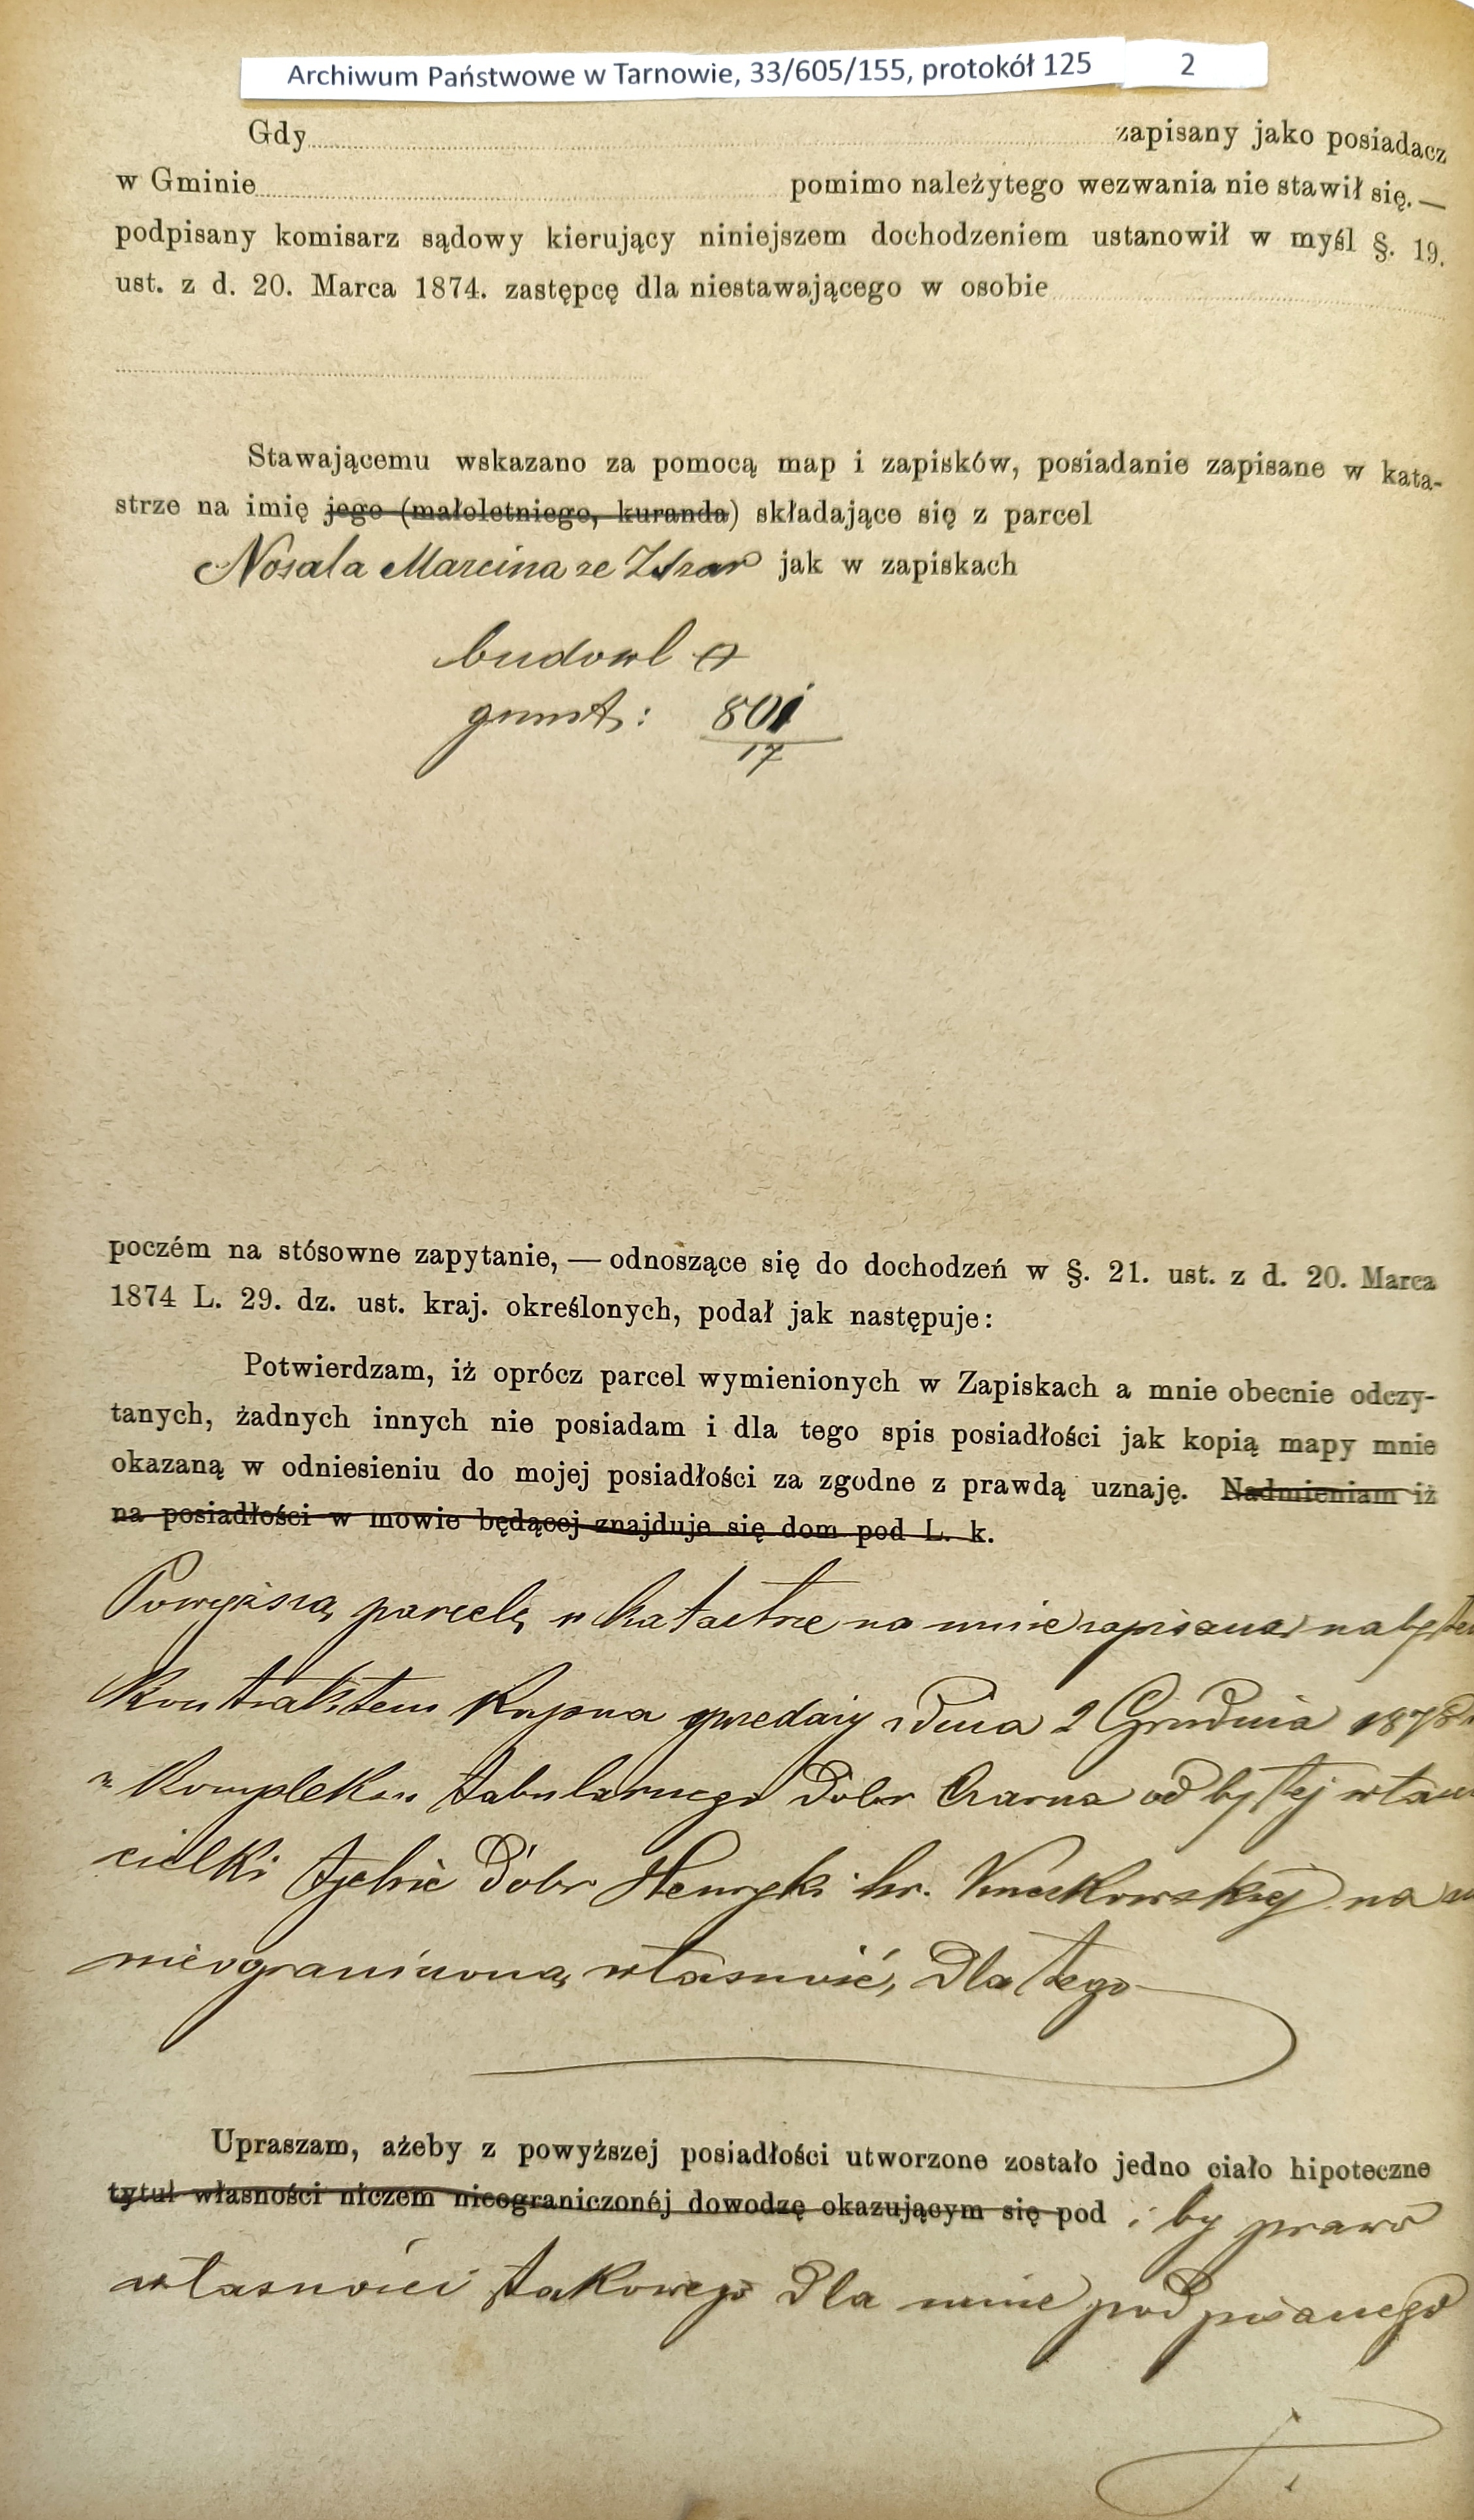 Archiwum Państwowe w Tarnowie, 33/605/155, protokół 125 2
Gdy zapisany jako posiadacz
w Gminie pomimo należytego wezwania nie stawił się. —
podpisany komisarz sądowy kierujący niniejszem dochodzeniem ustanowił w myśl §. 19.
ust. z d. 20. Marca 1874. zastępcę dla niestawającego w osobie
Stawającemu wskazano za pomocą map i zapisków, posiadanie zapisane w kata-
strze na imię jego (małoletniego, kuranda) składające się z parcel
Nosala Marcina ze jak w zapiskach
budowl
grunt: 801
17
poczém na stósowne zapytanie, — odnoszące się do dochodzeń w §. 21. ust. z d. 20. Marca
1874 L. 29. dz. ust. kraj. określonych, podał jak następuje:
Potwierdzam, iż oprócz parcel wymienionych w Zapiskach a mnie obecnie odczy-
tanych, żadnych innych nie posiadam i dla tego spis posiadłości jak kopią mapy mnie
okazaną w odniesieniu do mojej posiadłości za zgodne z prawdą uznaję. Nadmieniam iż
na posiadłości w mowie będącej znajduje się dom pod L. k.
Powyższą parcelę w katastrze na mnie zapisaną
kontraktem kupna sprzedaży z dnia 2 Grudnia 1878
z kompleksu tabularnego dóbr Czarna od byłej
cielki tychże dóbr Henryki hr. na
nieograniczoną własność, dla tego
Upraszam, ażeby z powyższej posiadłości utworzone zostało jedno ciało hipoteczne
tytuł własności niczem nieograniczonéj dowodzę okazującym się pod i by prawo
własności takowego dla mnie podpisanego